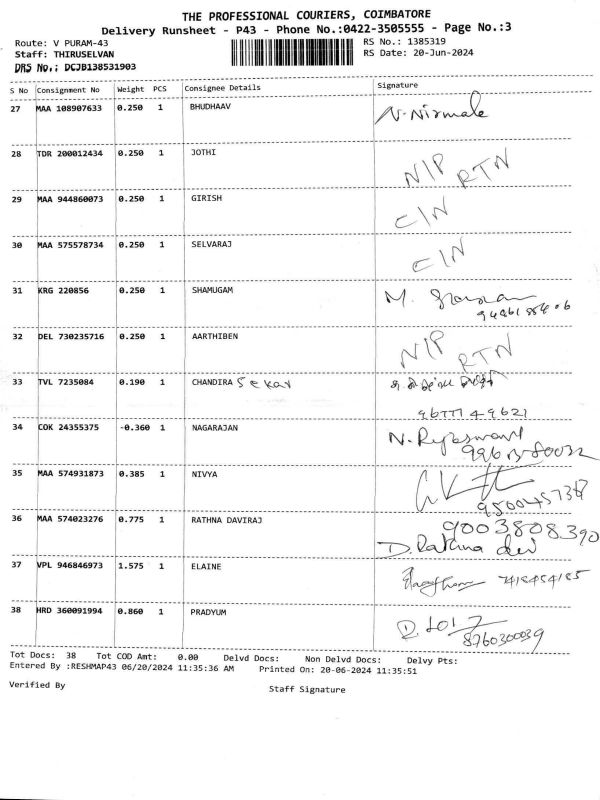 THE PROFESSIONAL COURIERS, COIMBATORE
Delivery Runsheet - P43 - Phone No.:0422-3505555 - Page No.:3
Route: V PURAM-43 RS No.: 1385319
Staff: THIRUSELVAN RS Date: 20-Jun-2024
DRS No.: DCJB138531903
S No Consignment No Weight PCS Consignee Details Signature
27 MAA 108907633 0.250 1 BHUDHAAV N. Nirmale
28 TDR 200012434 0.250 1 JOTHI N/P RTN
29 MAA 944860073 0.250 1 GIRISH C/N
30 MAA 575578734 0.250 1 SELVARAJ C/N
31 KRG 220856 0.250 1 SHAMUGAM M.
32 DEL 730235716 0.250 1 AARTHIBEN N/P RTN
33 TVL 7235084 0.190 1 CHANDIRA Sekar
34 COK 24355375 -0.360 1 NAGARAJAN N.
35 MAA 574931873 0.385 1 NIVYA
36 MAA 574023276 0.775 1 RATHNA DAVIRAJ 9003808390
D. Rathna devi
37 VPL 946846973 1.575 1 ELAINE
38 HRD 360091994 0.860 1 PRADYUM
8760300039
Tot Docs: 38 Tot COD Amt: 0.00 Delvd Docs: Non Delvd Docs: Delvy Pts:
Entered By :RESHMAP43 06/20/2024 11:35:36 AM Printed On: 20-06-2024 11:35:51
Verified By Staff Signature